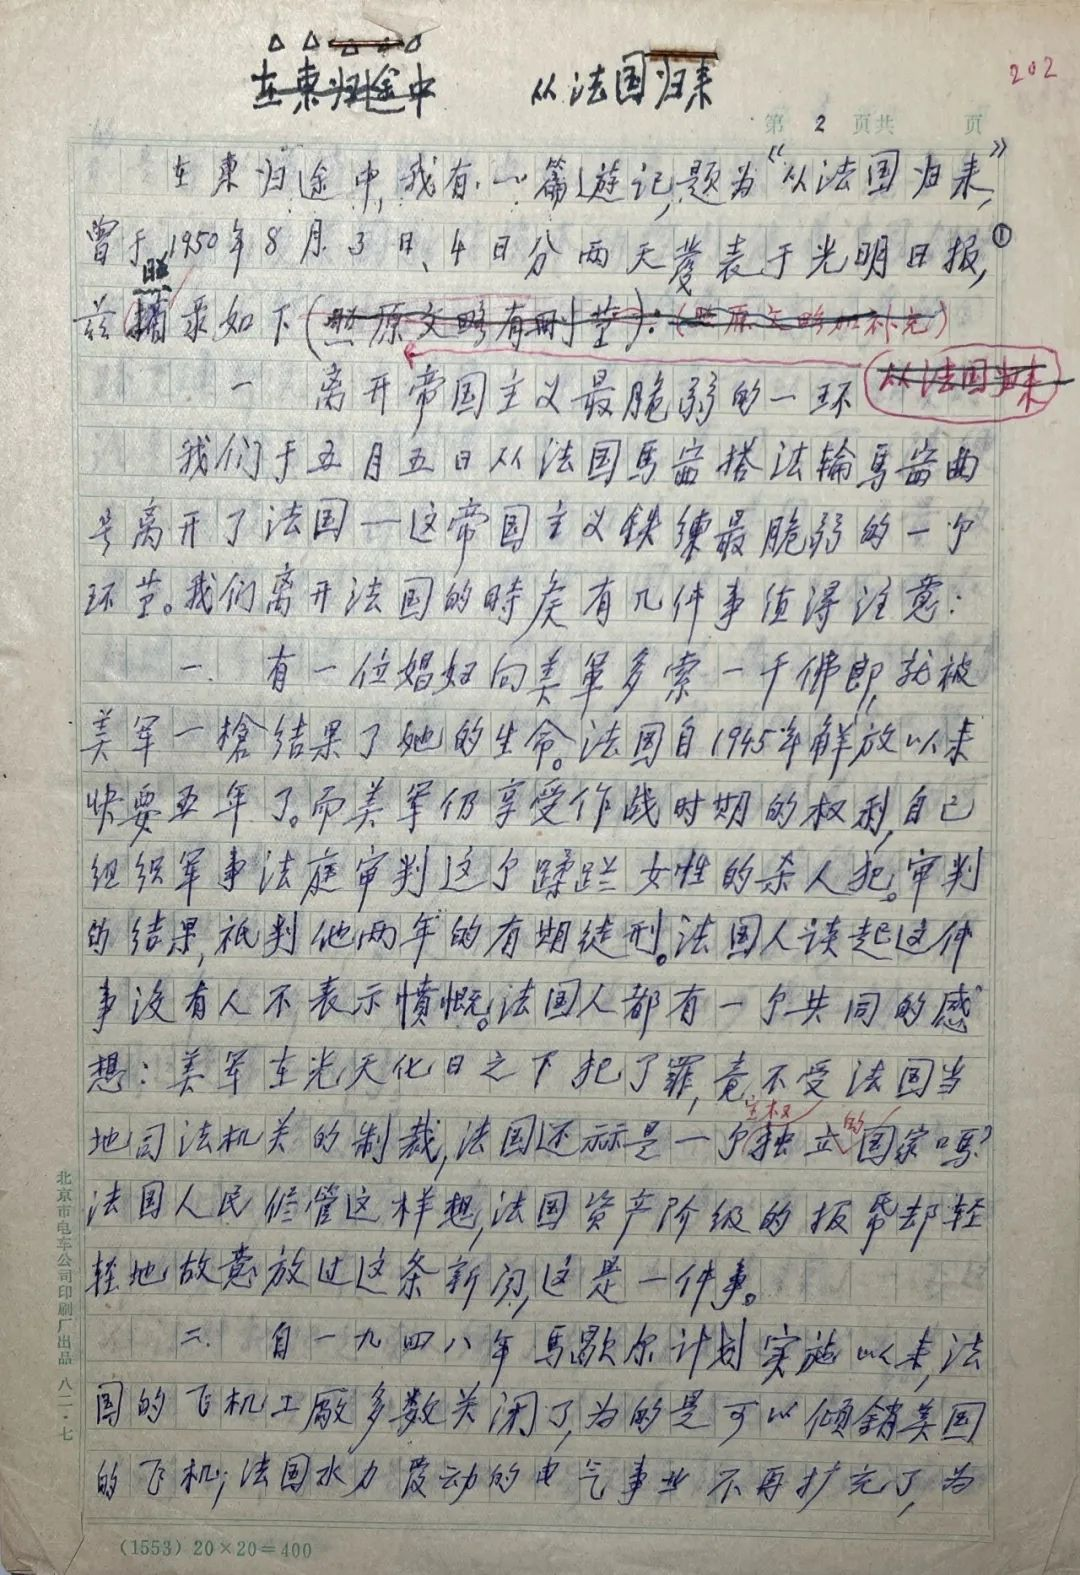 在東归途中 从法国归来
202
第 2 页共 页
在東归途中,我有一篇遊记,题为“从法国归来”,
曾于1950年8月3日、4日分两天发表于光明日报,①
照
兹摘录如下(照原文略有删节):(照原文略加补充)
从法国归来
一 离开帝国主义最脆弱的一环
我们于五月五日从法国馬耑搭法輪馬耑曲
号离开了法国—这帝国主义鉄練最脆弱的一个
环节。我们离开法国的時矦有几件事值得注意:
一. 有一位娼妇向美軍多索一千佛郎,就被
美军一槍结果了她的生命。法国自1945年解放以来
快要五年了。而美军仍享受作战时期的权利,自己
组织军事法庭审判这个蹂躏女性的杀人犯。审判
的结果,祇判他两年的有期徒刑。法国人谈起这件
事没有人不表示愤慨。法国人都有一个共同的感
想:美军在光天化日之下犯了罪,竟不受法国当
主权 的
地司法机关的制裁,法国还祘是一个独立国家吗?
法国人民尽管这样想,法国资产阶级的报帋却轻
轻地故意放过这条新闻,这是一件事。
二. 自一九四八年馬歇尔计划实施以来,法
国的飞机工厰多数关闭了,为的是可以倾銷美国
的飞机;法国水力发动的电气事业不再扩充了,为
北京市电车公司印刷厂出品 八二·七
(1553) 20×20=400